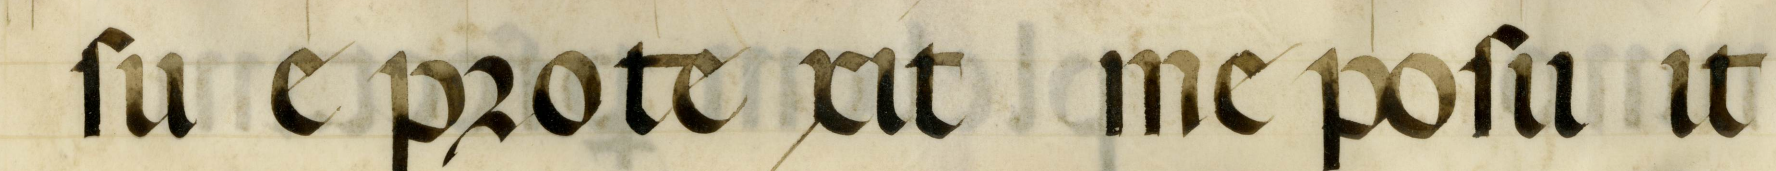 su e prote xit me posu it